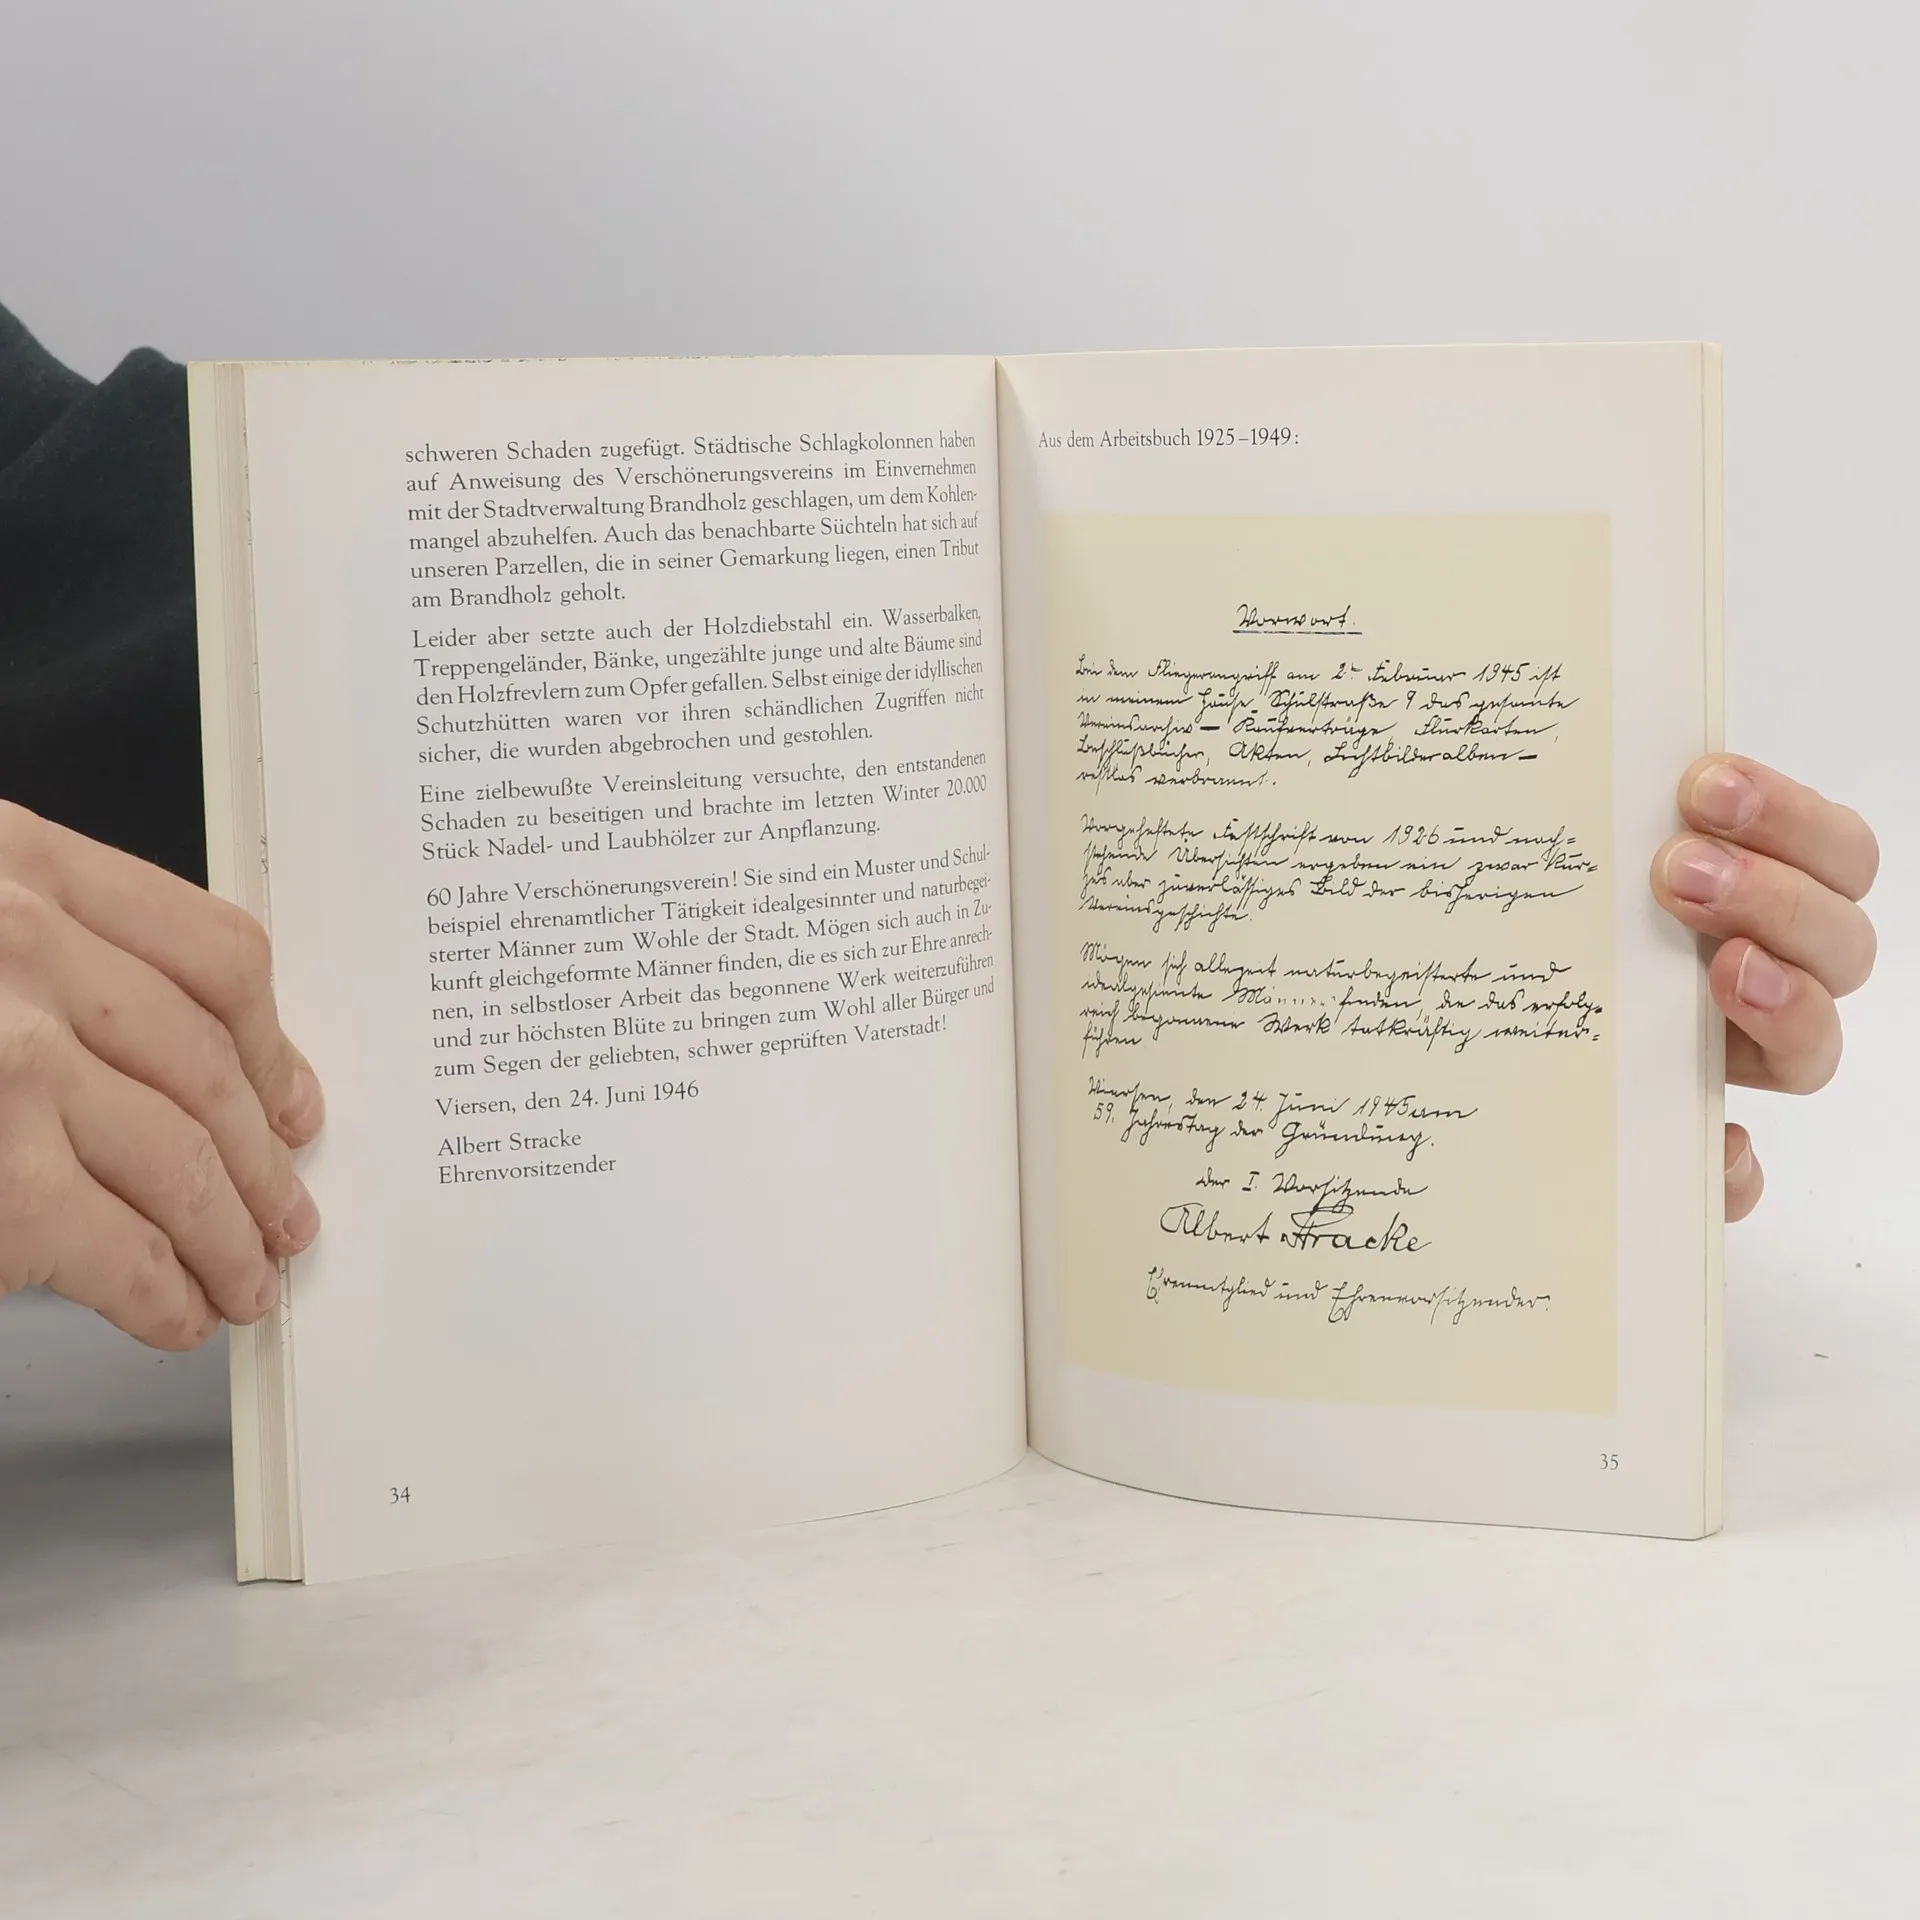 schweren Schaden zugefügt. Städtische Schlagkolonnen haben
auf Anweisung des Verschönerungsvereins im Einvernehmen
mit der Stadtverwaltung Brandholz geschlagen, um dem Kohlen-
mangel abzuhelfen. Auch das benachbarte Süchteln hat sich auf
unseren Parzellen, die in seiner Gemarkung liegen, einen Tribut
am Brandholz geholt.
Leider aber setzte auch der Holzdiebstahl ein. Wasserbalken,
Treppengeländer, Bänke, ungezählte junge und alte Bäume sind
den Holzfrevlern zum Opfer gefallen. Selbst einige der idyllischen
Schutzhütten waren vor ihren schändlichen Zugriffen nicht
sicher, die wurden abgebrochen und gestohlen.
Eine zielbewußte Vereinsleitung versuchte, den entstandenen
Schaden zu beseitigen und brachte im letzten Winter 20.000
Stück Nadel- und Laubhölzer zur Anpflanzung.
60 Jahre Verschönerungsverein! Sie sind ein Muster und Schul-
beispiel ehrenamtlicher Tätigkeit idealgesinnter und naturbegei-
sterter Männer zum Wohle der Stadt. Mögen sich auch in Zu-
kunft gleichgeformte Männer finden, die es sich zur Ehre anrech-
nen, in selbstloser Arbeit das begonnene Werk weiterzuführen
und zur höchsten Blüte zu bringen zum Wohl aller Bürger und
zum Segen der geliebten, schwer geprüften Vaterstadt!
Viersen, den 24. Juni 1946
Albert Stracke
Ehrenvorsitzender
34
Aus dem Arbeitsbuch 1925–1949:
Vorwort.
Bei dem Fliegerangriff am 2ten Februar 1945 ist
in meinem Hause, Schulstraße 9 das gesamte
Vereinsarchiv — Kaufverträge, Flurkarten,
Beschlußbücher, Akten, Lichtbilderalben —
restlos verbrannt.
Vorgeheftete Festschrift von 1926 und nach=
stehende Übersichten ergeben ein zwar kur=
zes aber zuverlässiges Bild der bisherigen
Vereinsgeschichte.
Mögen sich allezeit naturbegeisterte und
idealgesinnte Männer finden, die das erfolg=
reich begonnene Werk tatkräftig weiter=
führen
Viersen, den 24. Juni 1945 am
59. Jahrestag der Gründung.
der I. Vorsitzende
Albert Stracke
Ehrenmitglied und Ehrenvorsitzender.
35